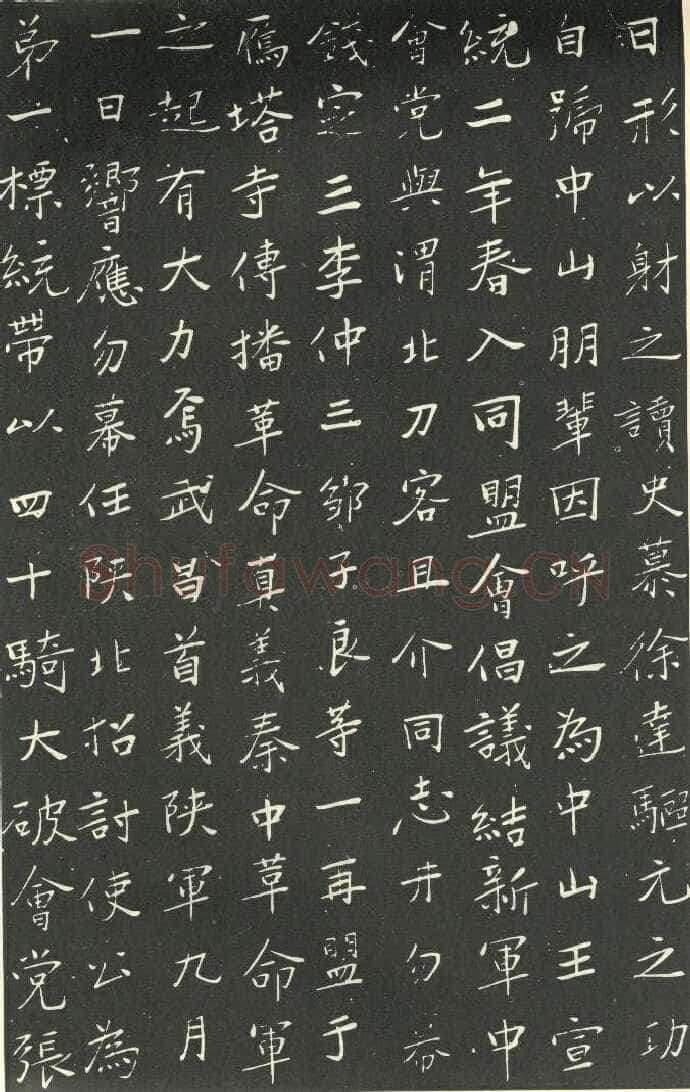 日形以射之讀史慕徐達驅元之功
自號中山朋輩因呼之為中山王宣
統二年春入同盟會倡議結新軍中
會党與渭北刀客且介同志井勿幕
錢定三李仲三鄒子良等一再盟于
雁塔寺傳播革命真義秦中革命軍
之起有大力焉武昌首義陝軍九月
一日響應勿幕任陝北招討使公為
弟一標統帶以四十騎大破會党張
Shufawang.CN